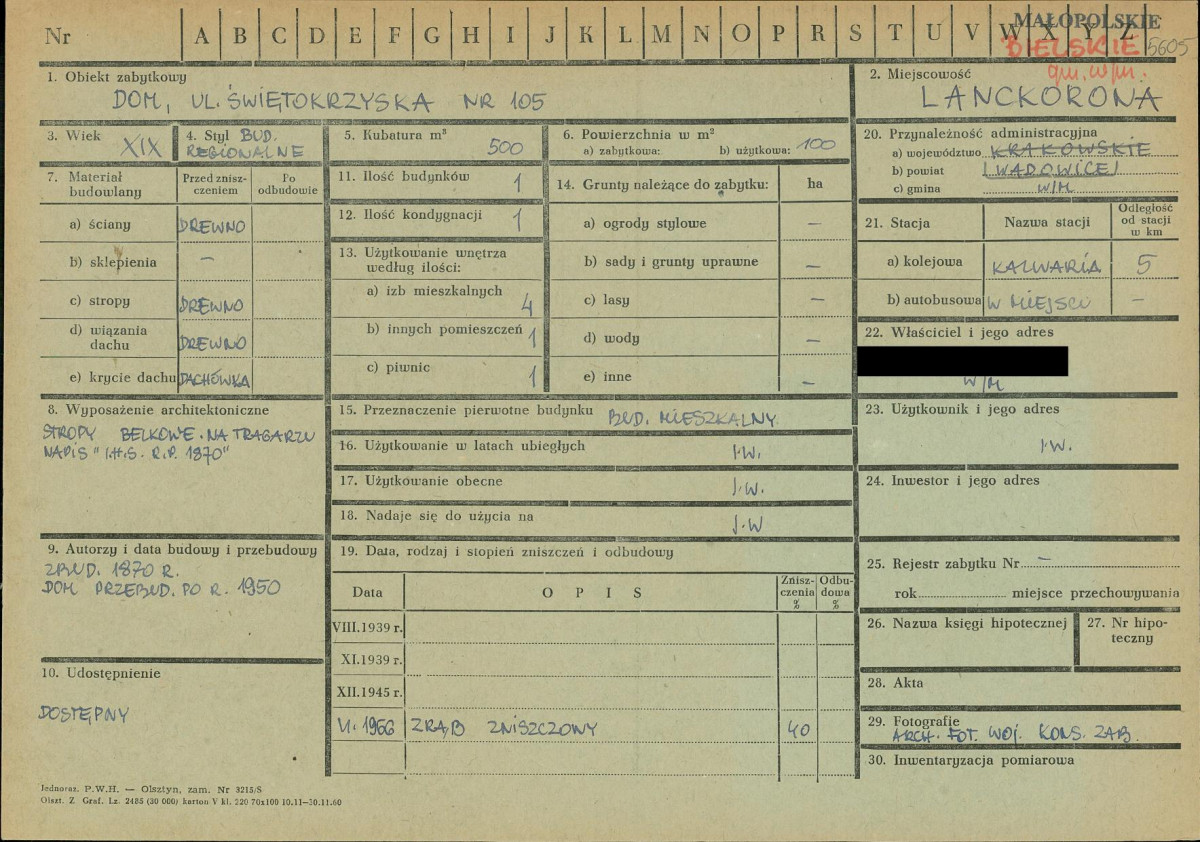 Nr A B C D E F G H I J K L M N O P R S T U V W X Y Z
MAŁOPOLSKIE
BIELSKIE
gm. w/m.
5605
1. Obiekt zabytkowy
DOM, UL. ŚWIĘTOKRZYSKA NR 105
2. Miejscowość
LANCKORONA
3. Wiek
XIX
4. Styl BUD.
REGIONALNE
5. Kubatura m³
500
6. Powierzchnia w m²
a) zabytkowa: b) użytkowa: 100
7. Materiał
budowlany
Przed znisz-
czeniem
Po
odbudowie
a) ściany DREWNO
b) sklepienia –
c) stropy DREWNO
d) wiązania
dachu DREWNO
e) krycie dachu DACHÓWKA
8. Wyposażenie architektoniczne
STROPY BELKOWE. NA TRAGARZU
NAPIS "I.H.S. R.P. 1870"
9. Autorzy i data budowy i przebudowy
ZBUD. 1870 R.
DOM PRZEBUD. PO R. 1950
10. Udostępnienie
DOSTĘPNY
11. Ilość budynków 1
12. Ilość kondygnacji 1
13. Użytkowanie wnętrza
według ilości:
a) izb mieszkalnych 4
b) innych pomieszczeń 1
c) piwnic 1
14. Grunty należące do zabytku: ha
a) ogrody stylowe –
b) sady i grunty uprawne –
c) lasy –
d) wody –
e) inne –
15. Przeznaczenie pierwotne budynku BUD. MIESZKALNY
16. Użytkowanie w latach ubiegłych J.W.
17. Użytkowanie obecne J.W.
18. Nadaje się do użycia na J.W
19. Data, rodzaj i stopień zniszczeń i odbudowy
Data OPIS Znisz-
czenia
%
Odbu-
dowa
%
VIII.1939 r.
XI.1939 r.
XII.1945 r.
VI. 1966 ZRĄB ZNISZCZOWY 40
20. Przynależność administracyjna
a) województwo KRAKOWSKIE
b) powiat WADOWICE
c) gmina W/M
21. Stacja Nazwa stacji Odległość
od stacji
w km
a) kolejowa KALWARIA 5
b) autobusowa W MIEJSCU –
22. Właściciel i jego adres
W/M
23. Użytkownik i jego adres
J.W.
24. Inwestor i jego adres
25. Rejestr zabytku Nr –
rok miejsce przechowywania
26. Nazwa księgi hipotecznej
27. Nr hipo-
teczny
28. Akta
29. Fotografie
ARCH. FOT. WOJ. KONS. ZAB.
30. Inwentaryzacja pomiarowa
Jednoraz. P.W.H. — Olsztyn, zam. Nr 3215/S
Olszt. Z. Graf. Lz. 2485 (30 000) karton V kl. 220 70x100 10.11—30.11.60